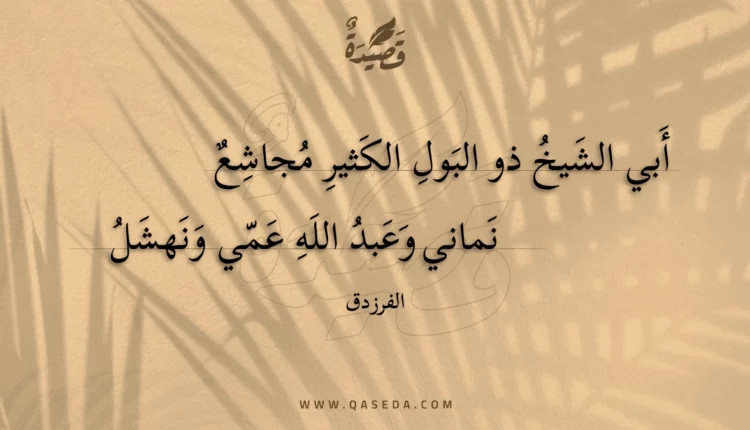 قَصِيْدَةٌ
أَبي الشَيخُ ذو البَولِ الكَثيرِ مُجاشِعٌ
نَماني وَعَبدُ اللَهِ عَمّي وَنَهشَلُ
الفرزدق
WWW.QASEDA.COM